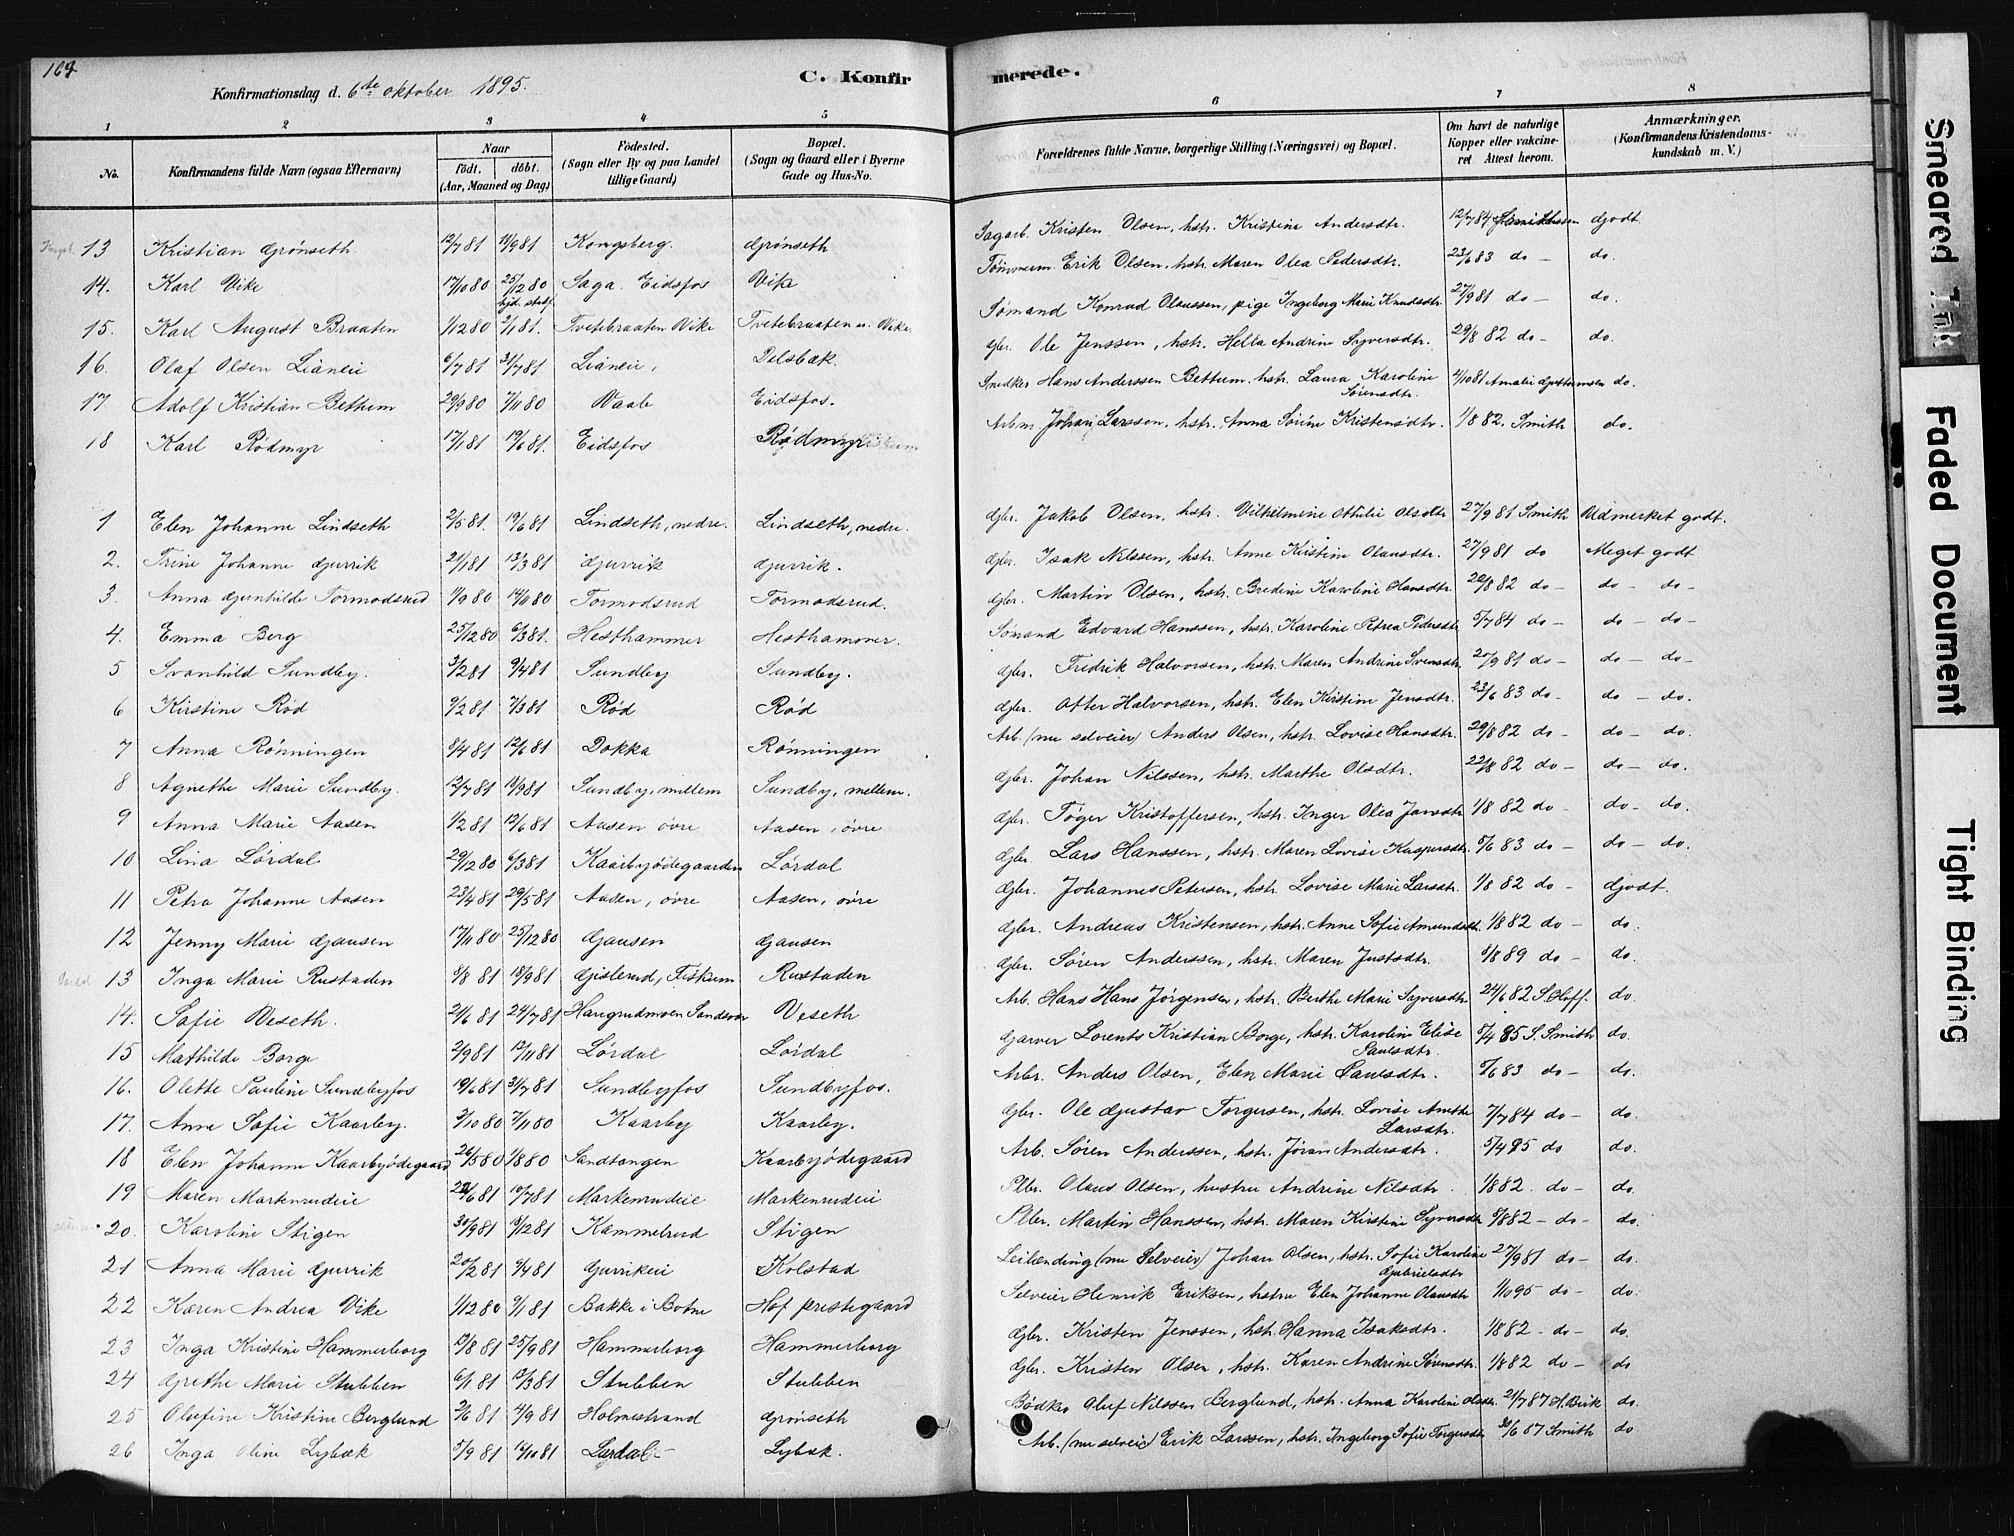 169
C. Konfirmerede.
Konfirmationsdag d. 6te oktober 1895.
1 2 3 4 5 6 7 8
No. Konfirmandens fulde Navn (ogsaa Efternavn) Naar födt. döbt. (Aar, Maaned og Dag) Födested. (Sogn eller By og paa Landet tillige Gaard) Bopæl. (Sogn og Gaard eller i Byerne Gade og Hus-No. Forældrenes fulde Navne, borgerlige Stilling (Næringsvei) og Bopæl. Om havt de naturlige Kopper eller vakcineret Attest herom. Anmærkninger. (Konfirmandens Kristendomskundskab m. V.)
13 Kristian Grönseth 12/7 81 11/9 81 Kongsberg. Grönseth Sagarb. Kristen Olsen, hstr. Kristine Andersdtr. 12/7 84 Godt
14. Karl Vike 17/10 80 25/12 80 hjd. stadf. Saga Eidsfos Vike Tömmerm. Erik Olsen, hstr. Maren Olea Pedersdtr. 23/6 83 do - do.
15. Karl August Braaten 1/12 80 2/1 81. Tvetebraaten Vike Tvetebraaten u. Vike. Sömand Konrad Olaussen, pige Ingeborg Marie Knudsdtr. 27/9 81 do - do.
16. Olaf Olsen Lianeie 6/7 81 31/7 81 Lianeie, Delsbæk. Gbr. Ole Jenssen, hstr. Hella Andrine Syversdtr. 29/8 82 do - do.
17 Adolf Kristian Bettum 29/9 80 7/11 80 Vaale Eidsfos. Snedker Hans Anderssen Bettum, hstr. Laura Karoline Sörensdtr. 4/10 81 Amalie Guttormsen do.
18 Karl Rödmyr 17/1 81 19/6 81. Eidsfos Rødmyr Fiskum Arbm. Johan Larssen, hstr. Anna Sörine Kristensdtr. 1/8 82. Smith do.
1 Elen Johanne Lindseth 2/5 81. 19/6 81 Lindseth, nedre. Lindseth, nedre. Gbr. Jakob Olsen, hstr. Vilhelmine Othilie Olsdtr 27/9 81 Smith Udmerket godt.
2. Trine Johanne Gurrik 21/1 81 13/3 81 Gurrik Gurrik. Gbr. Isak Nilssen, hstr. Anne Kristine Olausdtr. 27/9 81 do Meget godt
3. Anna Gunhilde Tormodsrud 1/9 80 14/11 80 Tormodsrud Tormodsrud. Gbr. Martin Olsen, hstr. Bredine Karoline Hansdtr. 29/8 82 do do - do -
4. Emma Berg 25/12 80 6/3 81. Hesthammer Hesthammer. Sömand Edvard Hanssen, hstr. Karoline Petrea Pedersdtr 5/7 84 do - do - do
5 Svanhild Sundby. 3/2 81 9/4 81 Sundby Sundby. Gbr. Fredrik Halvorsen, hstr. Maren Andrine Svensdtr. 20/9 81 do - do - do -
6 Kirstine Röd 9/2 81 7/3 81 Röd Röd Gbr. Otter Halvorsen, hstr. Elen Kirstine Jensdtr. 23/6 83 do - do - do.
7 Anna Rönningen 8/4 81 12/6 81 Dokka Rönningen Arb. (nu selveier) Anders Olsen, hstr. Lovise Hansdtr. 29/8 82 do - do - do.
8 Agnethe Marie Sundby. 12/7 81 11/9 81 Sundby, mellem Sundby, mellem. Gbr. Johan Nilssen, hstr. Marthe Olsdtr. 22/8 82 do - do - do.
9 Anna Marie Aasen 1/2 81 12/6 81 Aasen övre Aasen, övre Gbr. Töger Kristoffersen, hstr. Inger Olea Jansdtr 1/8 82 do - do - do.
10 Lina Lördal 29/12 80 6/3 81 Kaarbyödegaarden Lördal Gbr. Lars Hanssen, hstr. Maren Lovise Kaspersdtr. 5/6 83 do - do - do.
11 Petra Johanne Aasen 23/4 81 29/5 81 Aasen, övre Aasen, övre Gbr. Johannes Petersen, hstr. Lovise Marie Larsdtr. 1/8 82 do - Godt.
12 Jenny Marie Gausen 17/11 80 25/12 80 Gausen Gausen Gbr. Andreas Kristensen, hstr. Anne Sofie Amundsdtr. 1/8 82 do - do.
13 Inga Marie Rustaden 8/8 81 18/9 81 Gislerud, Fiskum Rustaden Gbr. Sören Anderssen, hstr. Maren Justsdtr. 8/8 89 do - do.
14. Sofie Veseth. 21/6 81 24/7 81 Haugrudmoen Sandsvær Veseth Arb. Hans Hans Jörgensen, hstr. Berthe Marie Syversdtr 24/6 82 S. Hoff. do.
15 Mathilde Borge 2/9 81 13/11 81 Lördal Lördal Garver Lorents Kristian Borge, hstr. Karoline Elise Paulsdtr. 5/4 85 S. Smith do.
16. Olette Pauline Sundbyfos 19/6 81 31/7 81 Sundbyfos Sundbyfos. Arbr. Anders Olsen, Elen Marie Paulsdtr. 5/6 83 do - do.
17. Anna Sofie Kaarby. 3/10 80 7/11 80 Kaarby Kaarby. Gbr. Ole Gustav Torgersen, hstr. Lovise Amalie Larsdtr. 7/7 84 do - do.
18 Elen Johanne Kaarbyödegaard 26/5 80 1/8 80 Sandtangen Kaarbyödegaard Arb. Sören Anderssen, hstr. Jöran Andersdtr. 5/4 85 do do.
19 Maren Markenrudeie 22/6 81 10/7 81 Markenrudeie Markenrudeie Plbr. Olaus Olsen, hustru Andrine Nilsdtr. 1/8 82. do - do.
20. Karoline Stigen 30/9 81 18/12 81 Kammelrud Stigen Plbr. Martin Hanssen, hstr. Maren Kirstine Syversdtr 8/8 82 - do - do.
21 Anna Marie Gurrik 20/2 81 9/4 81 Gurrikeie Kolstad Leilænding (nu Selveier) Johan Olsen, hstr. Sofie Karoline Gabrielsdtr 27/9 81 do - do.
22 Karen Andrea Vike 1/12 80 9/1 81 Bakke i Botne Hof prestegaard Selveier Henrik Eriksen, hstru Elen Johanne Olausdtr 1/10 95 do - do.
23 Inga Kristine Hammerborg 13/8 81 25/9 81 Hammerborg Hammerborg Gbr. Kristen Jenssen, hstr. Hanna Isaksdtr. 1/8 82 - do - do.
24 Grethe Marie Stubben 6/1 81 13/3 81 Stubben Stubben Gbr. Kristen Olsen, hstr. Karen Andrine Sörensdtr. 1/8 82 do - do
25 Olufine Kristine Berglund 2/6 81 4/9 81 Holmestrand Grönseth Bödker Oluf Nilssen Berglund, hstr. Anna Karoline Olsdtr. 21/7 87 H. Birk do.
26 Inga Oline Lybæk 5/9 81 14/10 81 Lardal - Lybæk. Arb. (nu selveier) Erik Larssen, hstr. Ingeborg Sofie Torgersdtr 30/6 87 Smith do
Smeared Ink
Faded Document
Tight Binding